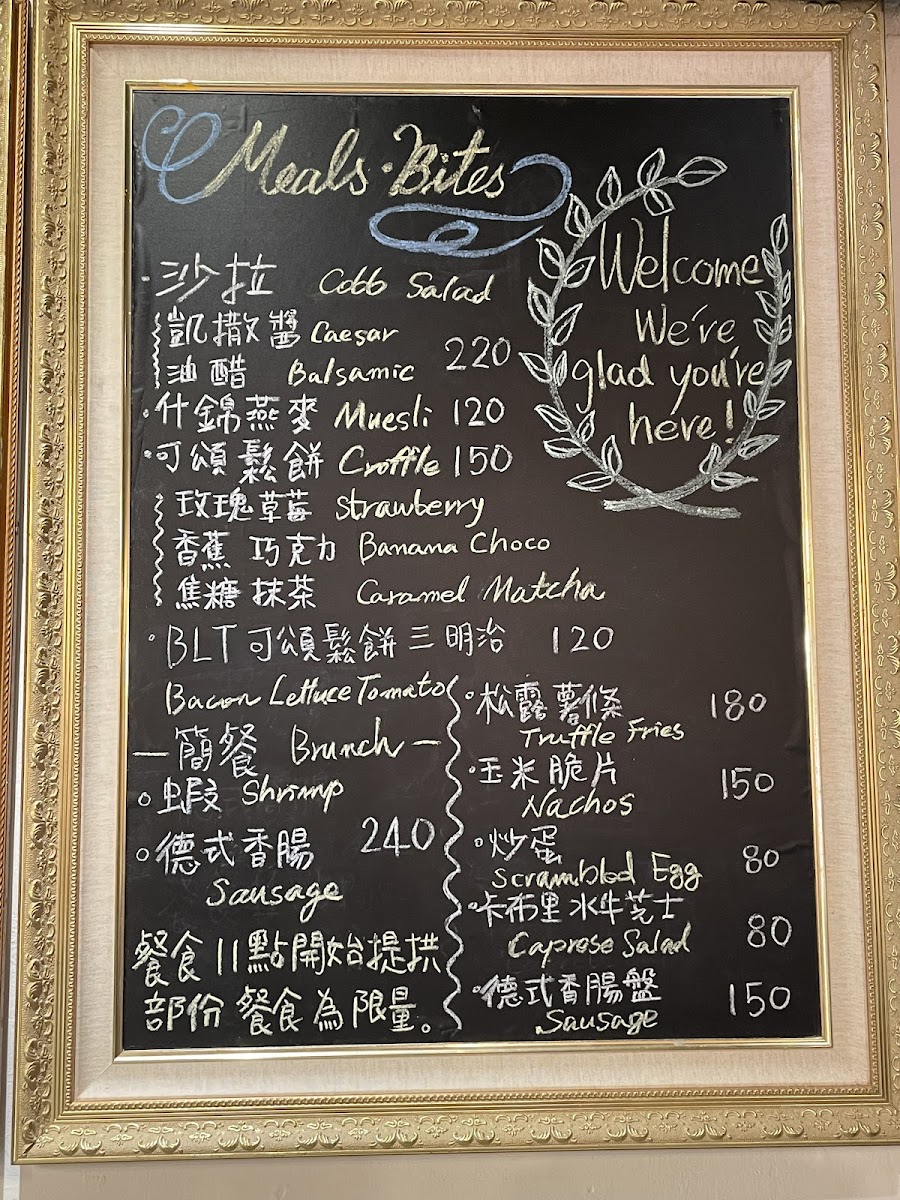 Meals · Bites
Welcome
We've
glad you're
here!
·沙拉 Cobb Salad
凱撒醬 Caesar
油醋 Balsamic 220
·什錦燕麥 Muesli 120
·可頌鬆餅 Croffle 150
玫瑰草莓 Strawberry
香蕉 巧克力 Banana Choco
焦糖 抹茶 Caramel Matcha
·BLT可頌鬆餅三明治 120
Bacon Lettuce Tomato
—簡餐 Brunch—
○蝦 Shrimp
○德式香腸 240
Sausage
餐食11點開始提供
部份餐食為限量。
·松露薯條 180
Truffle Fries
·玉米脆片 150
Nachos
·炒蛋 80
Scrambled Egg
·卡布里水牛芝士 80
Caprese Salad
·德式香腸盤 150
Sausage